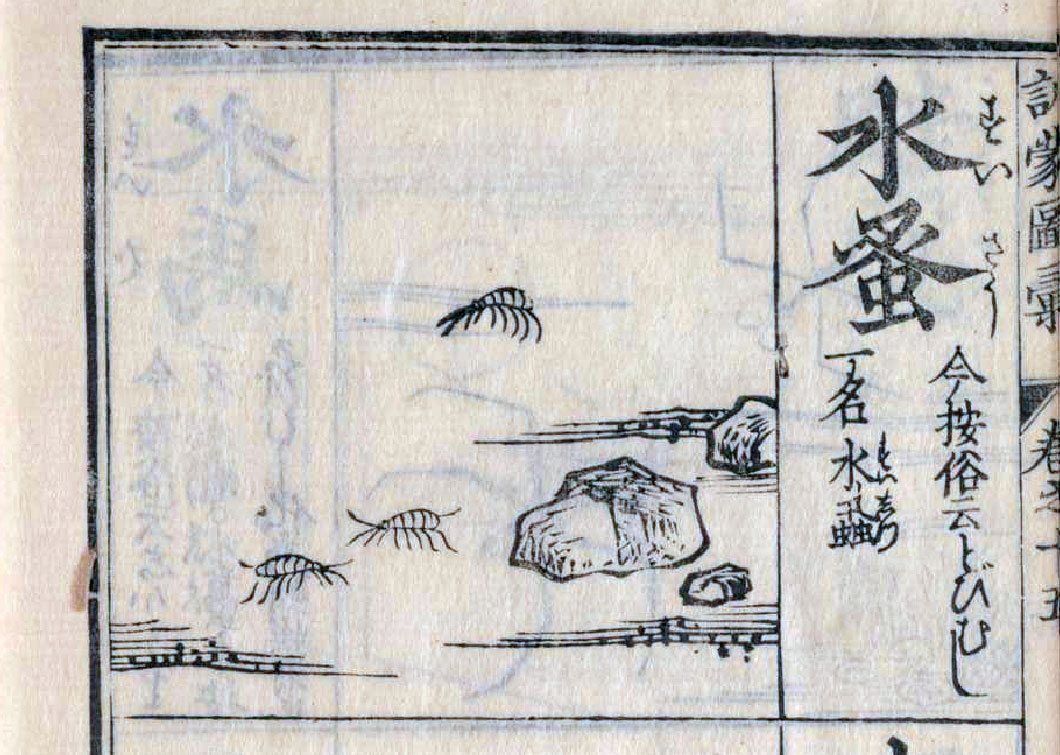 訓蒙圖彙 卷之十五
すい さう
水蚤
今按俗云とびむし
一名水蝨
すいしつ